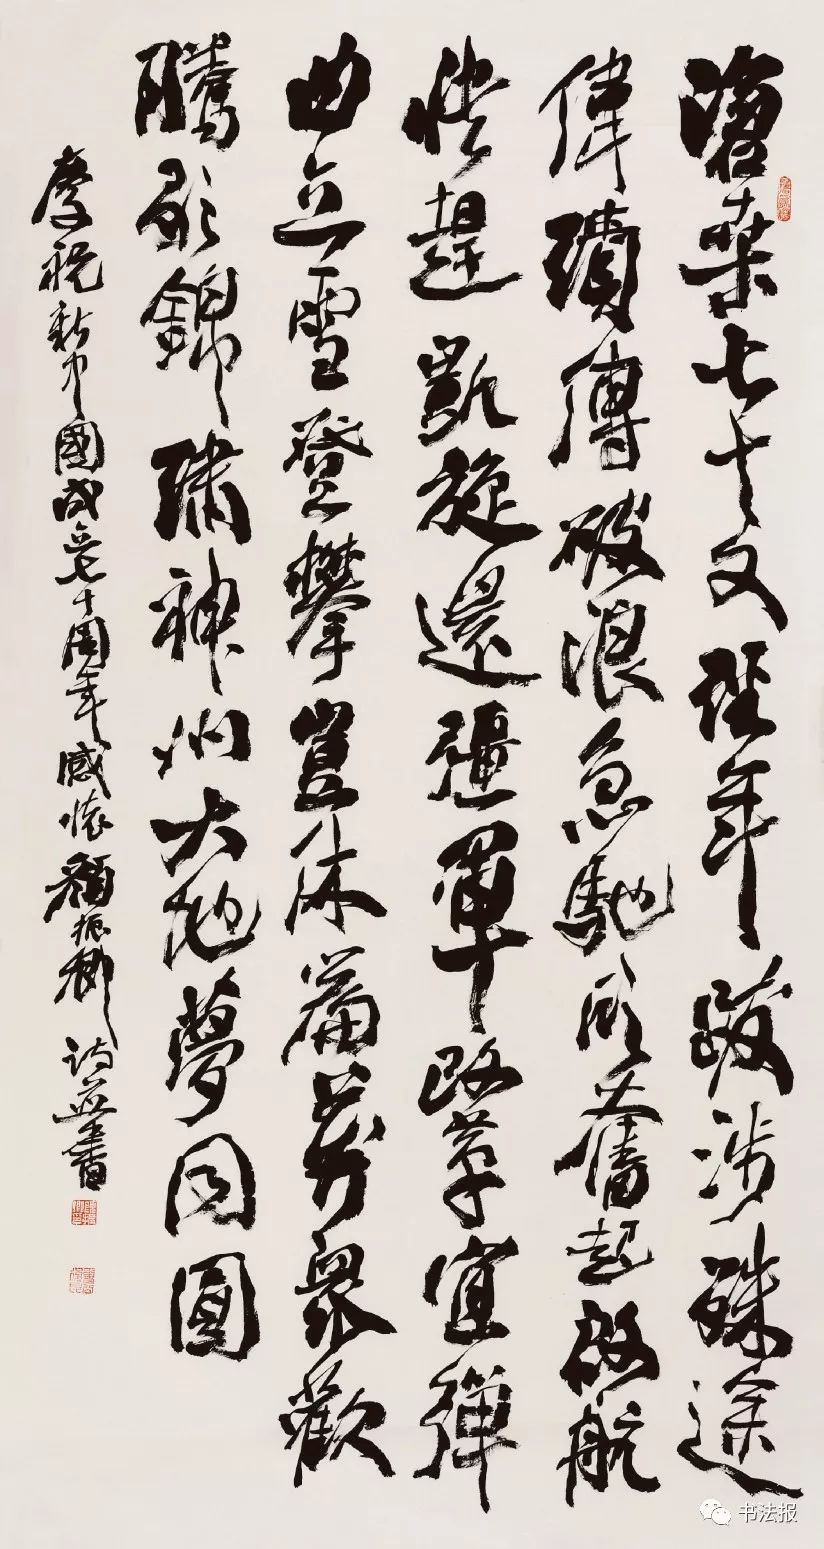 滄桑七十又經年跋涉殊途
偉績傳破浪急馳欣奮起啟航
快趕凱旋還彊軍改革宜彈
曲立雪登攀豈休篇萬眾歡
騰歌錦繡神州大地夢同圓
慶祝新中國成立七十周年感懷顏振卿詩並書
书法报